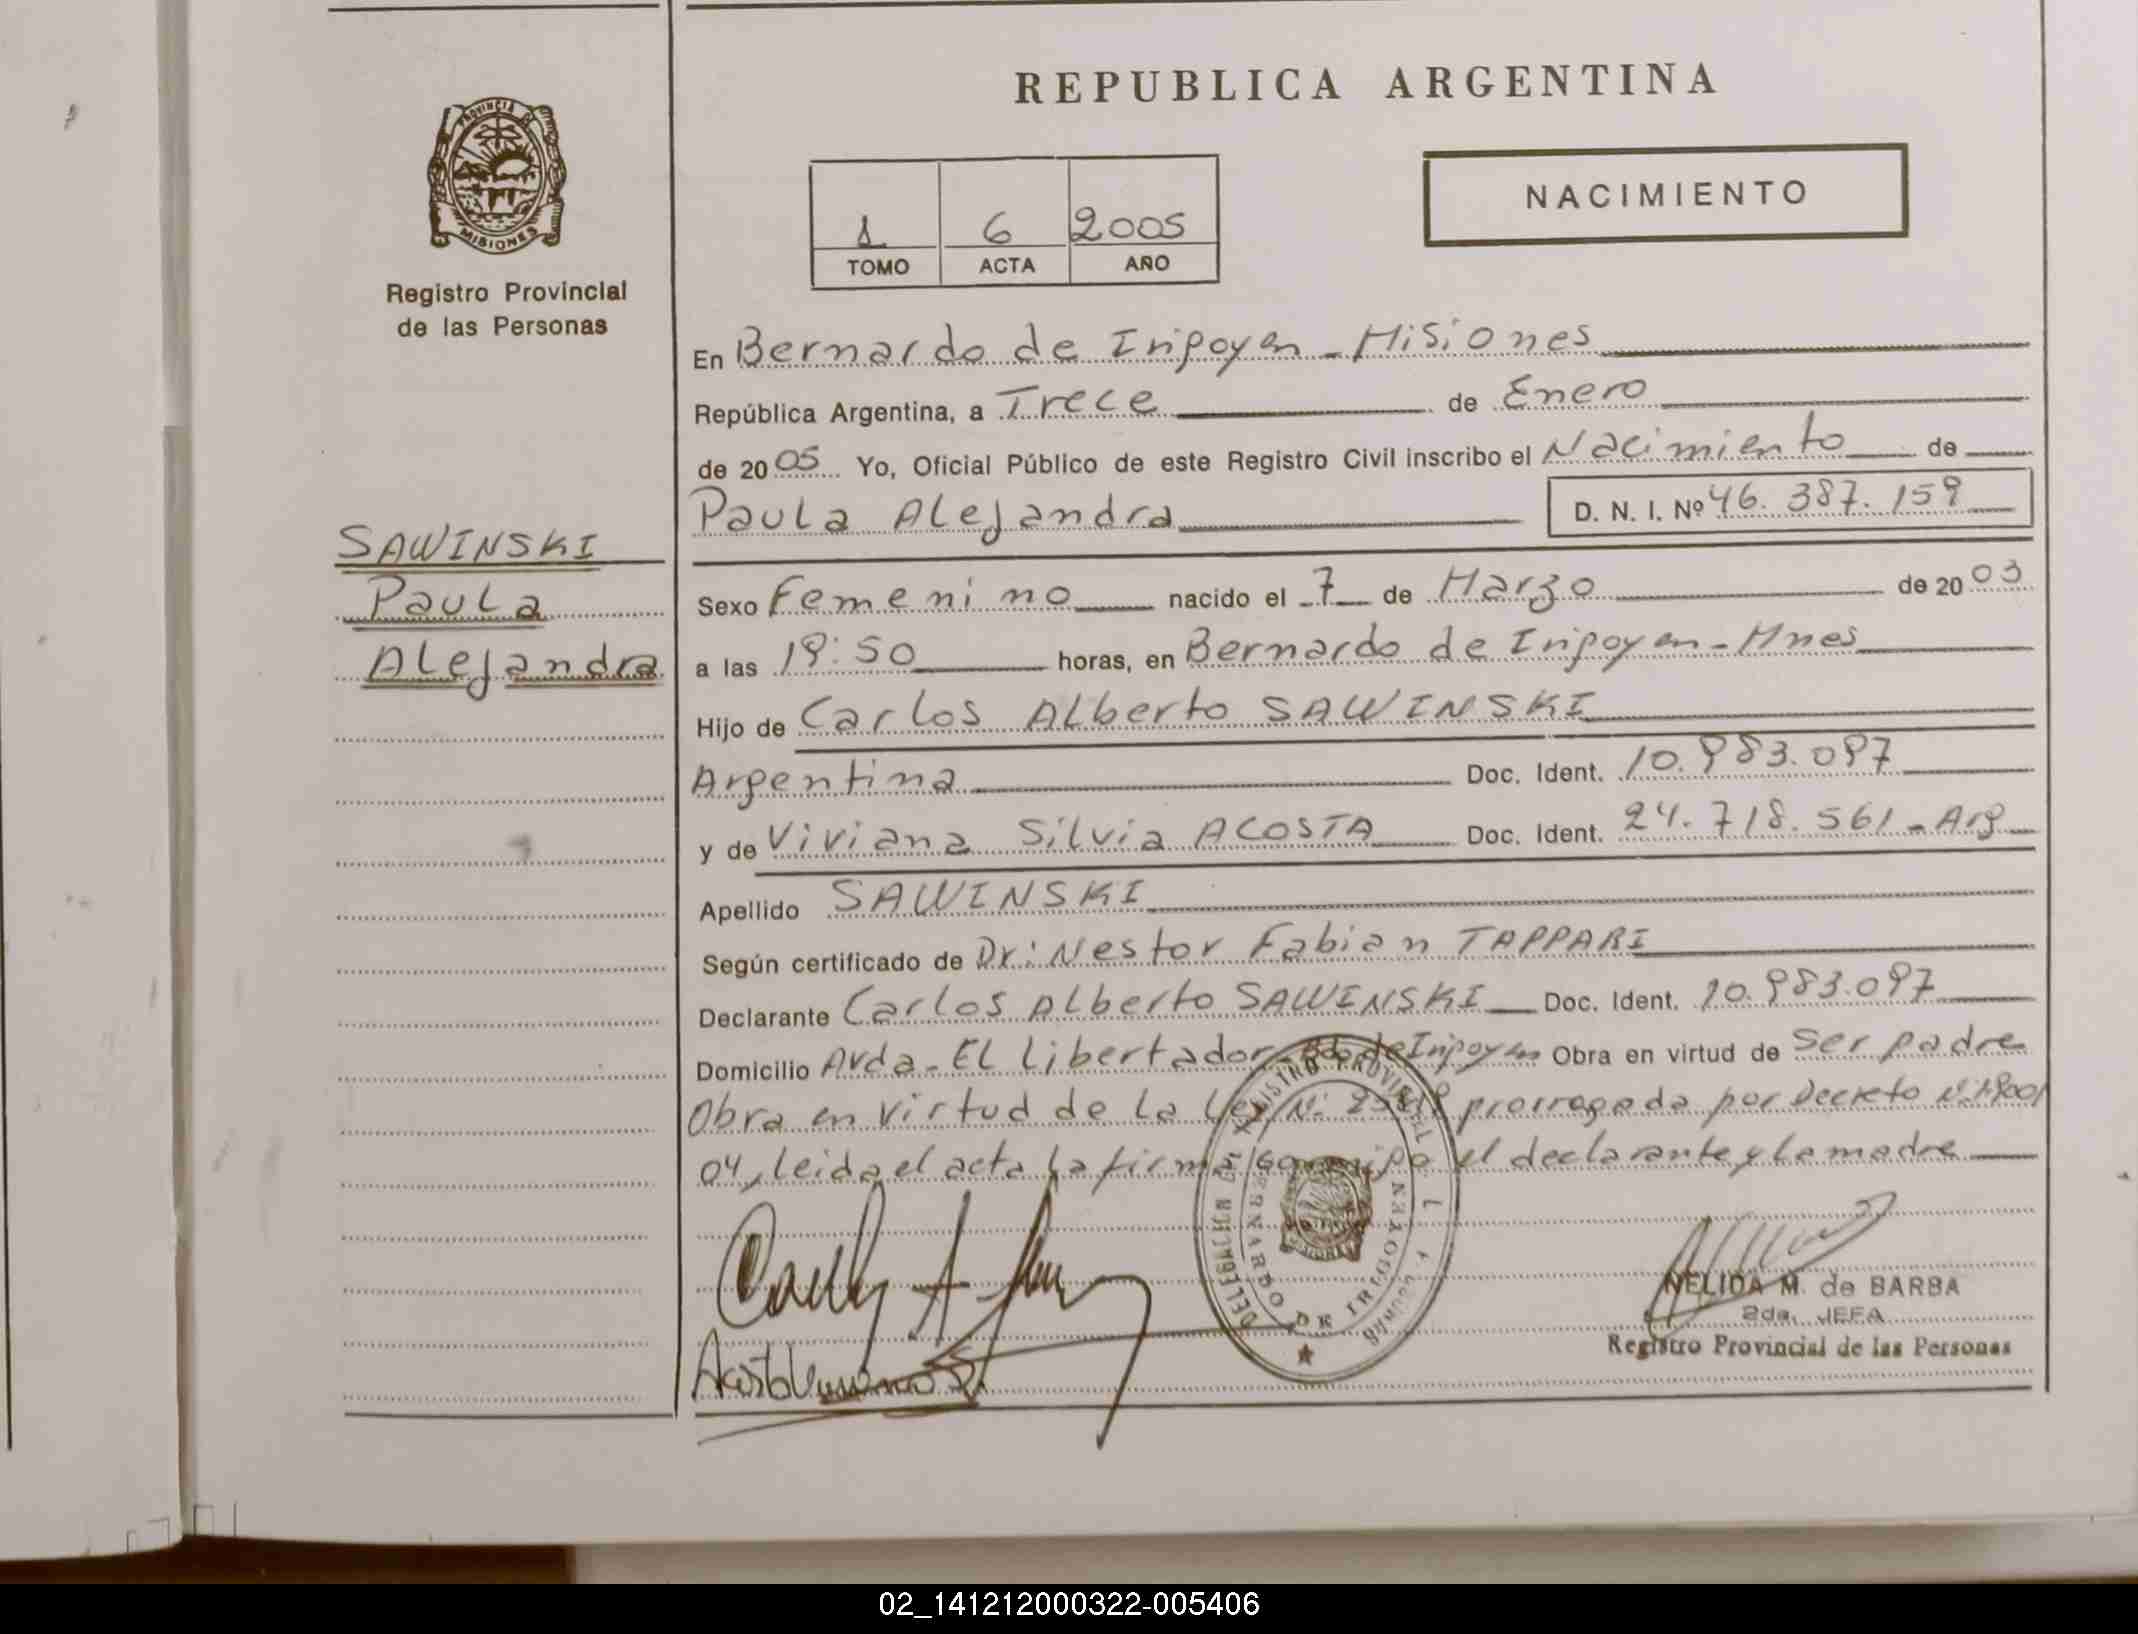 REPUBLICA ARGENTINA
PROVINCIA DE
MISIONES
Registro Provincial
de las Personas
NACIMIENTO
1 6 2005
TOMO ACTA AÑO
SAWINSKI
Paula
Alejandra
En Bernardo de Irigoyen - Misiones
República Argentina, a Trece de Enero
de 2005 Yo, Oficial Público de este Registro Civil inscribo el Nacimiento de
Paula Alejandra D. N. I. Nº 46.387.159
Sexo Femenino nacido el 7 de Marzo de 2003
a las 19:50 horas, en Bernardo de Irigoyen - Mnes
Hijo de Carlos Alberto SAWINSKI
Argentina Doc. Ident. 10.983.097
y de Viviana Silvia ACOSTA Doc. Ident. 24.718.561 - Arg
Apellido SAWINSKI
Según certificado de Dr: Nestor Fabian TAPPARI
Declarante Carlos Alberto SAWINSKI Doc. Ident. 10.983.097
Domicilio Avda - El Libertador - Bdo de Irigoyen Obra en virtud de Ser padre
Obra en virtud de la Ley Nº prorrogada por Decreto Nº
04, leida el acta la firma conmigo el declarante y la madre
DELEGACION REGISTRO PROVINCIAL
BERNARDO DE IRIGOYEN
NELIDA M. de BARBA
2da. JEFA
Registro Provincial de las Personas
02_141212000322-005406